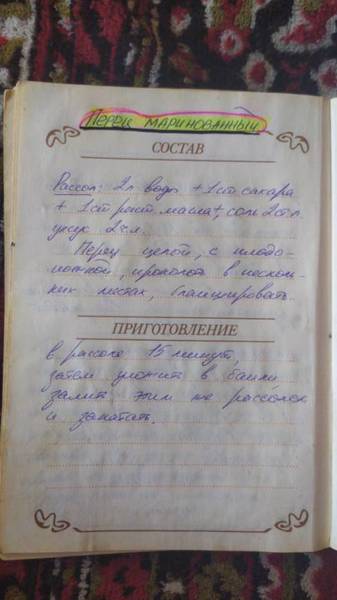 Перец маринованный
СОСТАВ
Рассол: 2л воды + 1 ст сахара
+ 1 ст раст. масла +, соли 2 ст л
уксус 2 ч.л.
Перец целой, с плодо-
ножкой, проколот в несколь-
ких местах, бланшировать
ПРИГОТОВЛЕНИЕ
в рассоле 15 минут,
затем уложить в банки
залить этим же рассолом
и закатать.